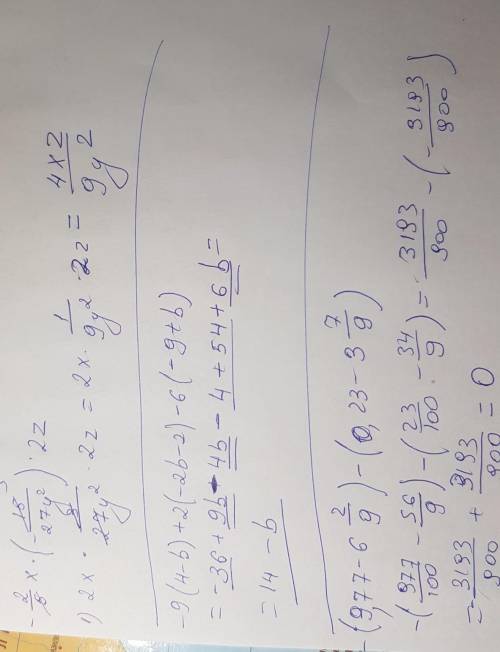 -2/5 x · (-15/27y²) · 2z
1) 2x · 3/27y² · 2z = 2x · 1/9y² · 2z = 4xz/9y²
-9(4-b)+2(-2b-2)-6(-9+b)
= -36+9b-4b-4+54+6b=
= 14-b
-(9,77-6 2/9)-(0,23-3 7/9)
-(977/100 - 56/9)-(23/100 - 34/9) = -3193/900 - (-3193/900)
= -3193/900 + 3193/900 = 0